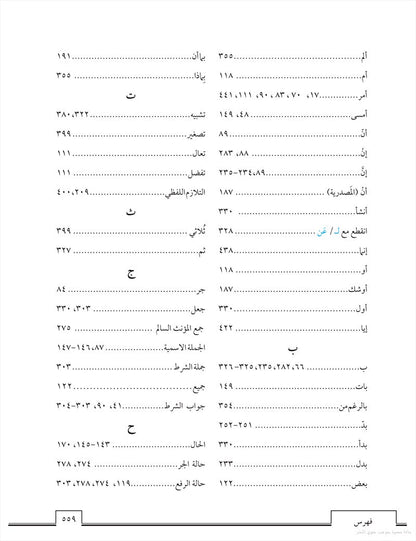 ألم........................٣٥٥
أم........................١١٨
أمر..............١٧، ٧٠، ٨٣، ٩٠، ١١١، ٤٤١
أمسى........................٤٨، ١٤٩
أنّ........................٨٩
إنْ........................٨٨، ٢٨٣
إنَّ........................٨٩،٢٣٤-٢٣٥
أنْ (المصدرية) ........................١٨٧
أنشأ........................٣٣٠
انقطع مع لـ / عَن ........................٣٢٨
إنما........................٤٣٨
أو........................١١٨
أوشك........................١٨٧
أول........................٣٣٠
إيا........................٤٢٢
ب
بـ........................٦٦، ٢٨٢، ٢٣٥، ٣٢٥-٣٢٦
بات........................١٤٩
بالرغم من........................٣٥٤
بدّ........................٢٥١-٢٥٢
بدأ........................٣٣٠
بدل........................٢٣٣
بعض........................١٢٢
بما أن........................١٩١
بماذا........................٣٥٥
ت
تشبيه........................٣٢٢، ٣٨٠
تصغير........................٣٩٩
تعال........................١١١
تفضل........................١١١
التلازم اللفظي........................٢٠٩، ٤٠٠
ث
ثُلاثي........................٣٩٩
ثم........................٣٢٧
ج
جر........................٨٤
جعل........................٣٠٣، ٣٣٠
جمع المؤنث السالم ........................٢٧٥
الجملة الاسمية........................٨٧، ١٤٦-١٤٧
جملة الشرط........................٣٠٣
جميع........................١٢٢
جواب الشرط........................٤١، ٩٠، ٣٠٣-٣٠٤
ح
الحال........................١٤٣-١٤٥، ١٧٠
حالة الجر........................٢٧٤، ٢٧٨
حالة الرفع........................١١٩، ٢٧٤، ٢٧٨، ٣٠٣
فهرس
٥٥٩